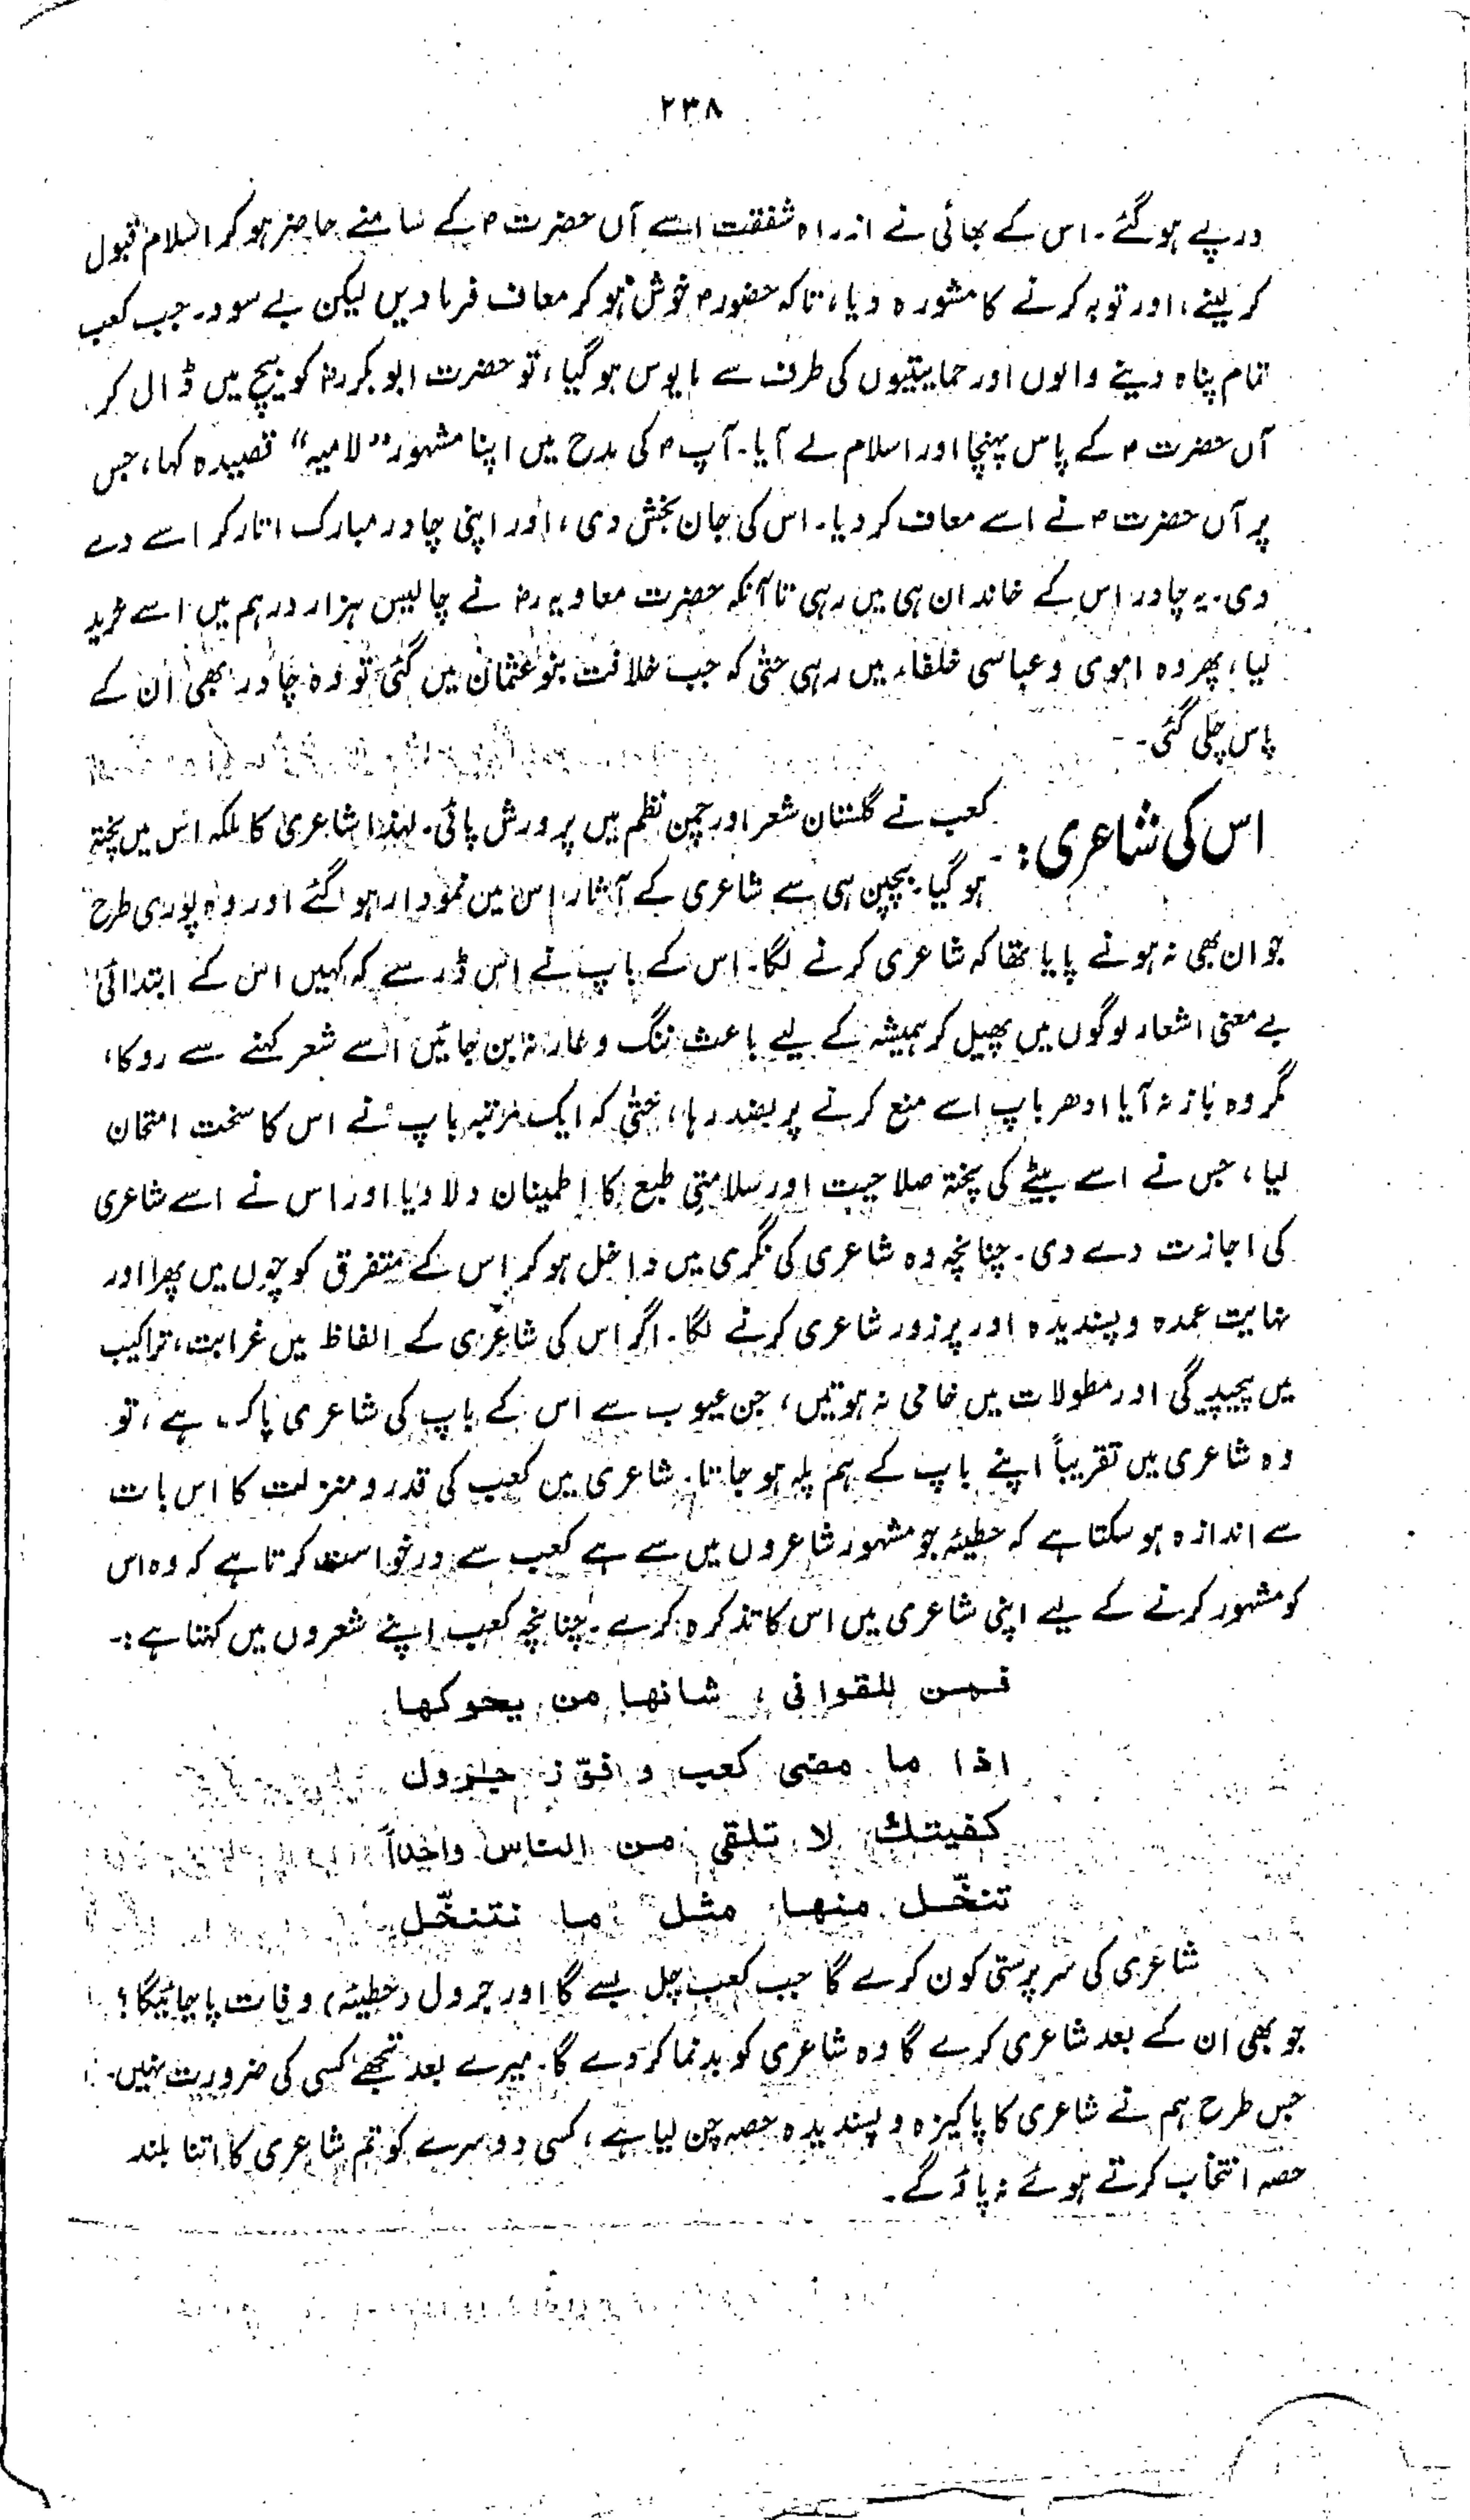 ۲۳۸
درپے ہو گئے۔ اس کے بھائی نے ازراہ شفقت اسے آں حضرتؐ کے سامنے حاضر ہو کر اسلام قبول
کر لینے، اور توبہ کرنے کا مشورہ دیا، تاکہ حضورؐ خوش ہو کر معاف فرما دیں لیکن بے سود۔ جب کعب
تمام پناہ دینے والوں اور حمایتیوں کی طرف سے مایوس ہو گیا، تو حضرت ابوبکرؓ کو بیچ میں ڈال کر
آں حضرتؐ کے پاس پہنچا اور اسلام لے آیا۔ آپؐ کی مدح میں اپنا مشہور "لامیہ" قصیدہ کہا، جس
پر آں حضرتؐ نے اسے معاف کر دیا۔ اس کی جان بخش دی، اور اپنی چادر مبارک اتار کر اسے دے
دی۔ یہ چادر اس کے خاندان ہی میں رہی تاآنکہ حضرت معاویہؓ نے چالیس ہزار درہم میں اسے خرید
لیا، پھر وہ اموی و عباسی خلفاء میں رہی حتیٰ کہ جب خلافت بنو عثمان میں گئی تو وہ چادر بھی ان کے
پاس چلی گئی۔
اس کی شاعری:۔ کعب نے گلستان شعر اور چمن نظم میں پرورش پائی۔ لہٰذا شاعری کا ملکہ اس میں پختہ
ہو گیا۔ بچپن ہی سے شاعری کے آثار اس میں نمودار ہو گئے اور وہ پوری طرح
جوان بھی نہ ہونے پایا تھا کہ شاعری کرنے لگا۔ اس کے باپ نے اس ڈر سے کہ کہیں اس کے ابتدائی
بے معنی اشعار لوگوں میں پھیل کر ہمیشہ کے لیے باعث ننگ و عار نہ بن جائیں اسے شعر کہنے سے روکا،
مگر وہ باز نہ آیا ادھر باپ اسے منع کرنے پر بضد رہا، حتیٰ کہ ایک مرتبہ باپ نے اس کا سخت امتحان
لیا، جس نے اسے بیٹے کی پختہ صلاحیت اور سلامتیِ طبع کا اطمینان دلا دیا اور اس نے اسے شاعری
کی اجازت دے دی۔ چنانچہ وہ شاعری کی نگری میں داخل ہو کر اس کے متفرق کوچوں میں پھرا اور
نہایت عمدہ و پسندیدہ اور پرزور شاعری کرنے لگا۔ اگر اس کی شاعری کے الفاظ میں غرابت، تراکیب
میں پیچیدگی اور مطولات میں خامی نہ ہوتیں، جن عیوب سے اس کے باپ کی شاعری پاک ہے، تو
وہ شاعری میں تقریباً اپنے باپ کے ہم پلہ ہو جاتا۔ شاعری میں کعب کی قدر و منزلت کا اس بات
سے اندازہ ہو سکتا ہے کہ حطیئہ جو مشہور شاعروں میں سے ہے کعب سے درخواست کرتا ہے کہ وہ اس
کو مشہور کرنے کے لیے اپنی شاعری میں اس کا تذکرہ کرے۔ چنانچہ کعب اپنے شعروں میں کہتا ہے:۔
فمن للقوافی، شانها من يحوكها
اذا ما مضى كعب و فوّز جرول
كفيتك لا تلقى من الناس واحداً
تنخّل منها مثل ما نتنخّل
شاعری کی سرپرستی کون کرے گا جب کعب چل بسے گا اور جرول (حطیئہ) وفات پا جائیگا؟
جو بھی ان کے بعد شاعری کرے گا وہ شاعری کو بدنما کر دے گا۔ میرے بعد تجھے کسی کی ضرورت نہیں۔
جس طرح ہم نے شاعری کا پاکیزہ و پسندیدہ حصہ چن لیا ہے، کسی دوسرے کو تم شاعری کا اتنا بلند
حصہ انتخاب کرتے ہوئے نہ پاؤ گے۔